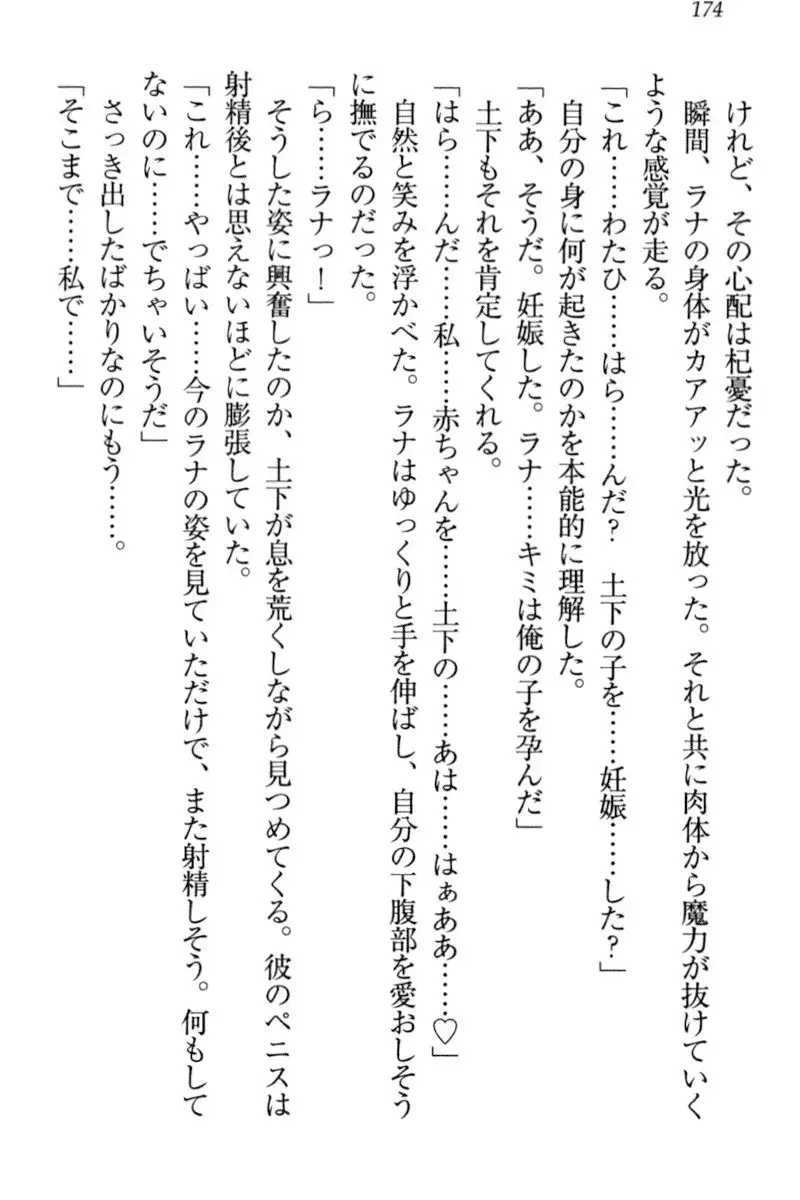 174
けれど、その心配は杞憂だった。
瞬間、ラナの身体がカアアッと光を放った。それと共に肉体から魔力が抜けていく
ような感覚が走る。
「これ……わたひ……はら……んだ？　土下の子を……妊娠……した？」
自分の身に何が起きたのかを本能的に理解した。
「ああ、そうだ。妊娠した。ラナ……キミは俺の子を孕んだ」
土下もそれを肯定してくれる。
「はら……んだ……私……赤ちゃんを……土下の……あは……はぁああ……♡」
自然と笑みを浮かべた。ラナはゆっくりと手を伸ばし、自分の下腹部を愛おしそう
に撫でるのだった。
「ら……ラナっ！」
そうした姿に興奮したのか、土下が息を荒くしながら見つめてくる。彼のペニスは
射精後とは思えないほどに膨張していた。
「これ……やっばい……今のラナの姿を見ていただけで、また射精しそう。何もして
ないのに……でちゃいそうだ」
さっき出したばかりなのにもう……。
「そこまで……私で……」